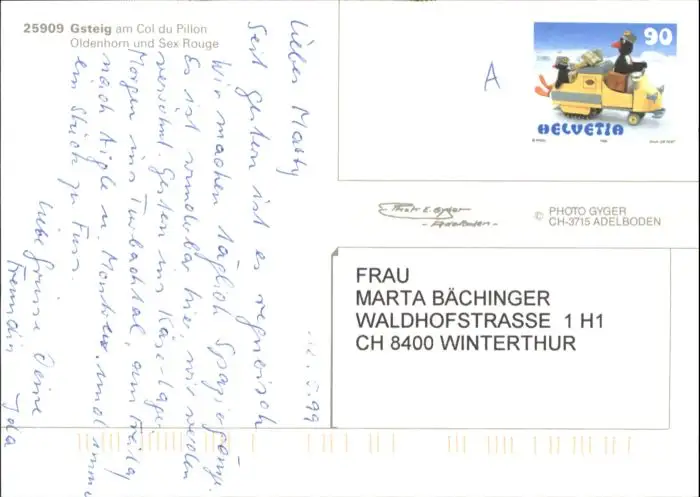 25909 Gsteig am Col du Pillon
Oldenhorn und Sex Rouge
Liebes Matty
12. 5. 99
Seit gestern ist es regnerisch
Wir machen täglich Spaziergänge.
Es ist wunderbar hier, wir werden
verwöhnt. Gestern ins Käse-Lager
Morgen ins Turbachtal, am Freitag
nach Aigle u. Montreux und immer
ein Stück zu Fuss.
Liebe Grüsse Deine
Freundin Ida
A
90
HELVETIA
Photo E. Gyger
- Adelboden -
© PHOTO GYGER
CH-3715 ADELBODEN
FRAU
MARTA BÄCHINGER
WALDHOFSTRASSE 1 H1
CH 8400 WINTERTHUR